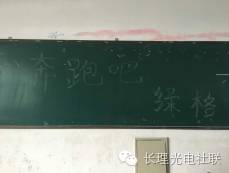 奔跑吧
绿格
长理光电社联